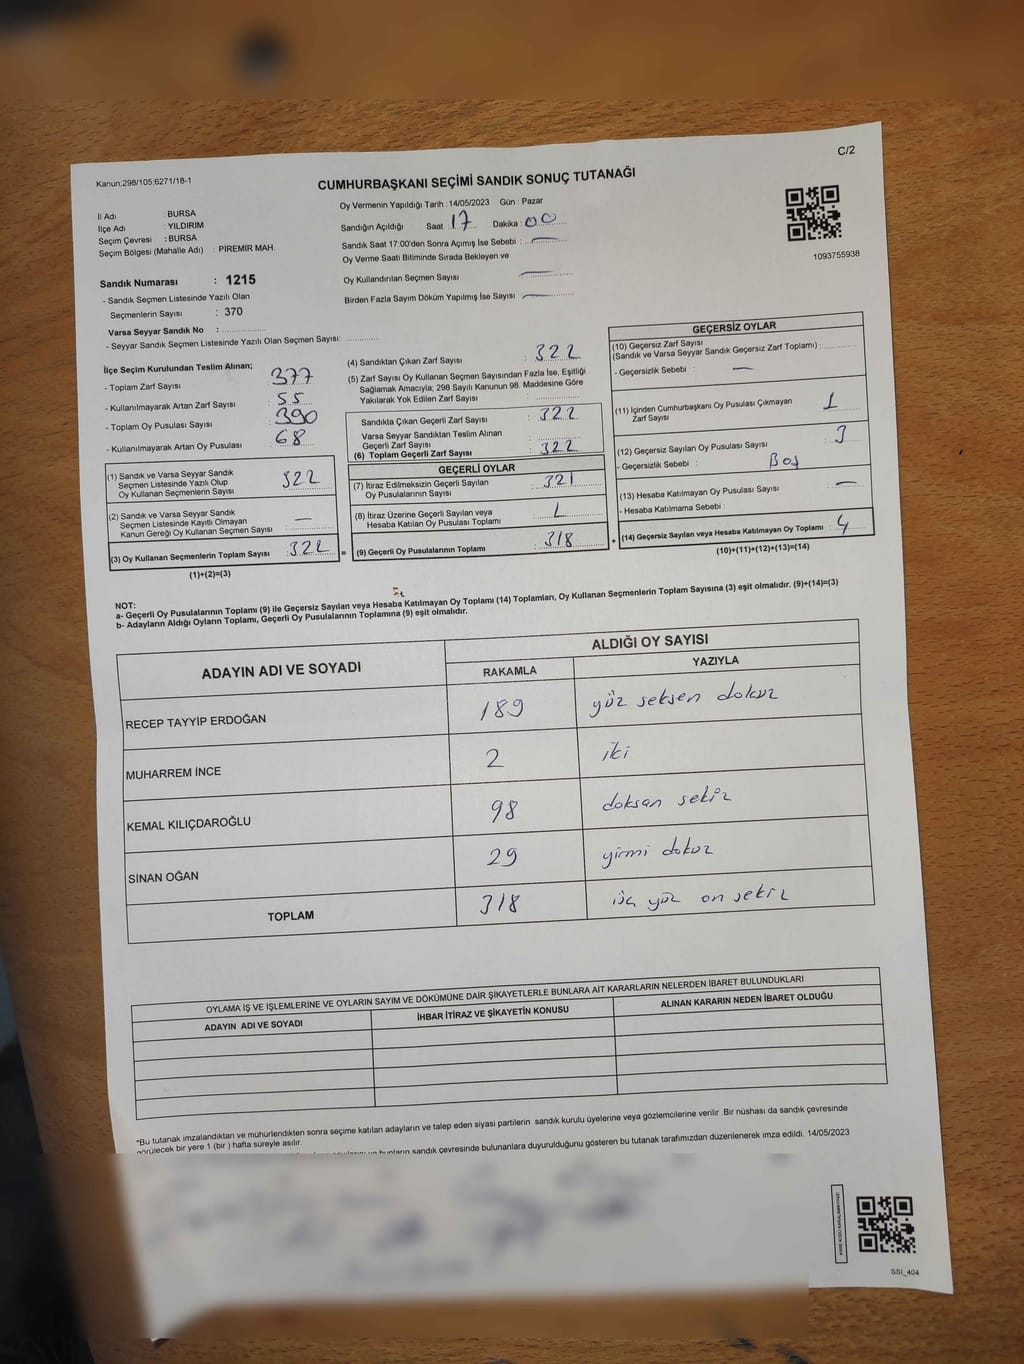 Kanun;298/105;6271/18-1
C/2
CUMHURBAŞKANI SEÇİMİ SANDIK SONUÇ TUTANAĞI
İl Adı : BURSA
İlçe Adı : YILDIRIM
Seçim Çevresi : BURSA
Seçim Bölgesi (Mahalle Adı) : PİREMİR MAH.
Oy Vermenin Yapıldığı Tarih : 14/05/2023 Gün : Pazar
Sandığın Açıldığı Saat : 17 Dakika : 00
Sandık Saat 17:00'den Sonra Açımış İse Sebebi :
Oy Verme Saati Bitiminde Sırada Bekleyen ve
Oy Kullandırılan Seçmen Sayısı
Birden Fazla Sayım Döküm Yapılmış İse Sayısı
1093755938
Sandık Numarası : 1215
- Sandık Seçmen Listesinde Yazılı Olan
Seçmenlerin Sayısı : 370
Varsa Seyyar Sandık No :
- Seyyar Sandık Seçmen Listesinde Yazılı Olan Seçmen Sayısı:
İlçe Seçim Kurulundan Teslim Alınan;
- Toplam Zarf Sayısı : 377
- Kullanılmayarak Artan Zarf Sayısı : 55
- Toplam Oy Pusulası : 390
- Kullanılmayarak Artan Oy Pusulası 68
(1) Sandık ve Varsa Seyyar Sandık
Seçmen Listesinde Yazılı Olup
Oy Kullanan Seçmenlerin Sayısı 322
(2) Sandık ve Varsa Seyyar Sandık
Seçmen Listesinde Kayıtlı Olmayan
Kanun Gereği Oy Kullanan Seçmen Sayısı —
(3) Oy Kullanan Seçmenlerin Toplam Sayısı : 322
(1)+(2)=(3)
(4) Sandıktan Çıkan Zarf Sayısı : 322
(5) Zarf Sayısı Oy Kullanan Seçmen Sayısından Fazla İse, Eşitliği
Sağlamak Amacıyla; 298 Sayılı Kanunun 98. Maddesine Göre
Yakılarak Yok Edilen Zarf Sayısı :
Sandıkta Çıkan Geçerli Zarf Sayısı : 322
Varsa Seyyar Sandıktan Teslim Alınan
Geçerli Zarf Sayısı :
(6) Toplam Geçerli Zarf Sayısı : 322
GEÇERLİ OYLAR
(7) İtiraz Edilmeksizin Geçerli Sayılan
Oy Pusulalarının Sayısı : 321
(8) İtiraz Üzerine Geçerli Sayılan veya
Hesaba Katılan Oy Pusulası Toplamı
= (9) Geçerli Oy Pusulalarının Toplamı : 318
GEÇERSİZ OYLAR
(10) Geçersiz Zarf Sayısı
(Sandık ve Varsa Seyyar Sandık Geçersiz Zarf Toplamı) :
- Geçersizlik Sebebi : —
(11) İçinden Cumhurbaşkanı Oy Pusulası Çıkmayan
Zarf Sayısı : 1
(12) Geçersiz Sayılan Oy Pusulası Sayısı : 3
- Geçersizlik Sebebi : Boş
(13) Hesaba Katılmayan Oy Pusulası Sayısı : —
- Hesaba Katılmama Sebebi :
+ (14) Geçersiz Sayılan veya Hesaba Katılmayan Oy Toplamı : 4
(10)+(11)+(12)+(13)=(14)
NOT:
a- Geçerli Oy Pusulalarının Toplamı (9) ile Geçersiz Sayılan veya Hesaba Katılmayan Oy Toplamı (14) Toplamları, Oy Kullanan Seçmenlerin Toplam Sayısına (3) eşit olmalıdır. (9)+(14)=(3)
b- Adayların Aldığı Oyların Toplamı, Geçerli Oy Pusulalarının Toplamına (9) eşit olmalıdır.
ADAYIN ADI VE SOYADI
ALDIĞI OY SAYISI
RAKAMLA YAZIYLA
RECEP TAYYİP ERDOĞAN 189 yüz seksen dokuz
MUHARREM İNCE 2 iki
KEMAL KILIÇDAROĞLU 98 doksan sekiz
SİNAN OĞAN 29 yirmi dokuz
TOPLAM 318 üç yüz on sekiz
OYLAMA İŞ VE İŞLEMLERİNE VE OYLARIN SAYIM VE DÖKÜMÜNE DAİR ŞİKAYETLERLE BUNLARA AİT KARARLARIN NELERDEN İBARET BULUNDUKLARI
ADAYIN ADI VE SOYADI İHBAR İTİRAZ VE ŞİKAYETİN KONUSU ALINAN KARARIN NEDEN İBARET OLDUĞU
*Bu tutanak imzalandıktan ve mühürlendikten sonra seçime katılan adayların ve talep eden siyasi partilerin sandık kurulu üyelerine veya gözlemcilerine verilir .Bir nüshası da sandık çevresinde
görülecek bir yere 1 (bir ) hafta süreyle asılır.
bunların sandık çevresinde bulunanlara duyurulduğunu gösteren bu tutanak tarafımızdan düzenlenerek imza edildi. 14/05/2023
SSI_404